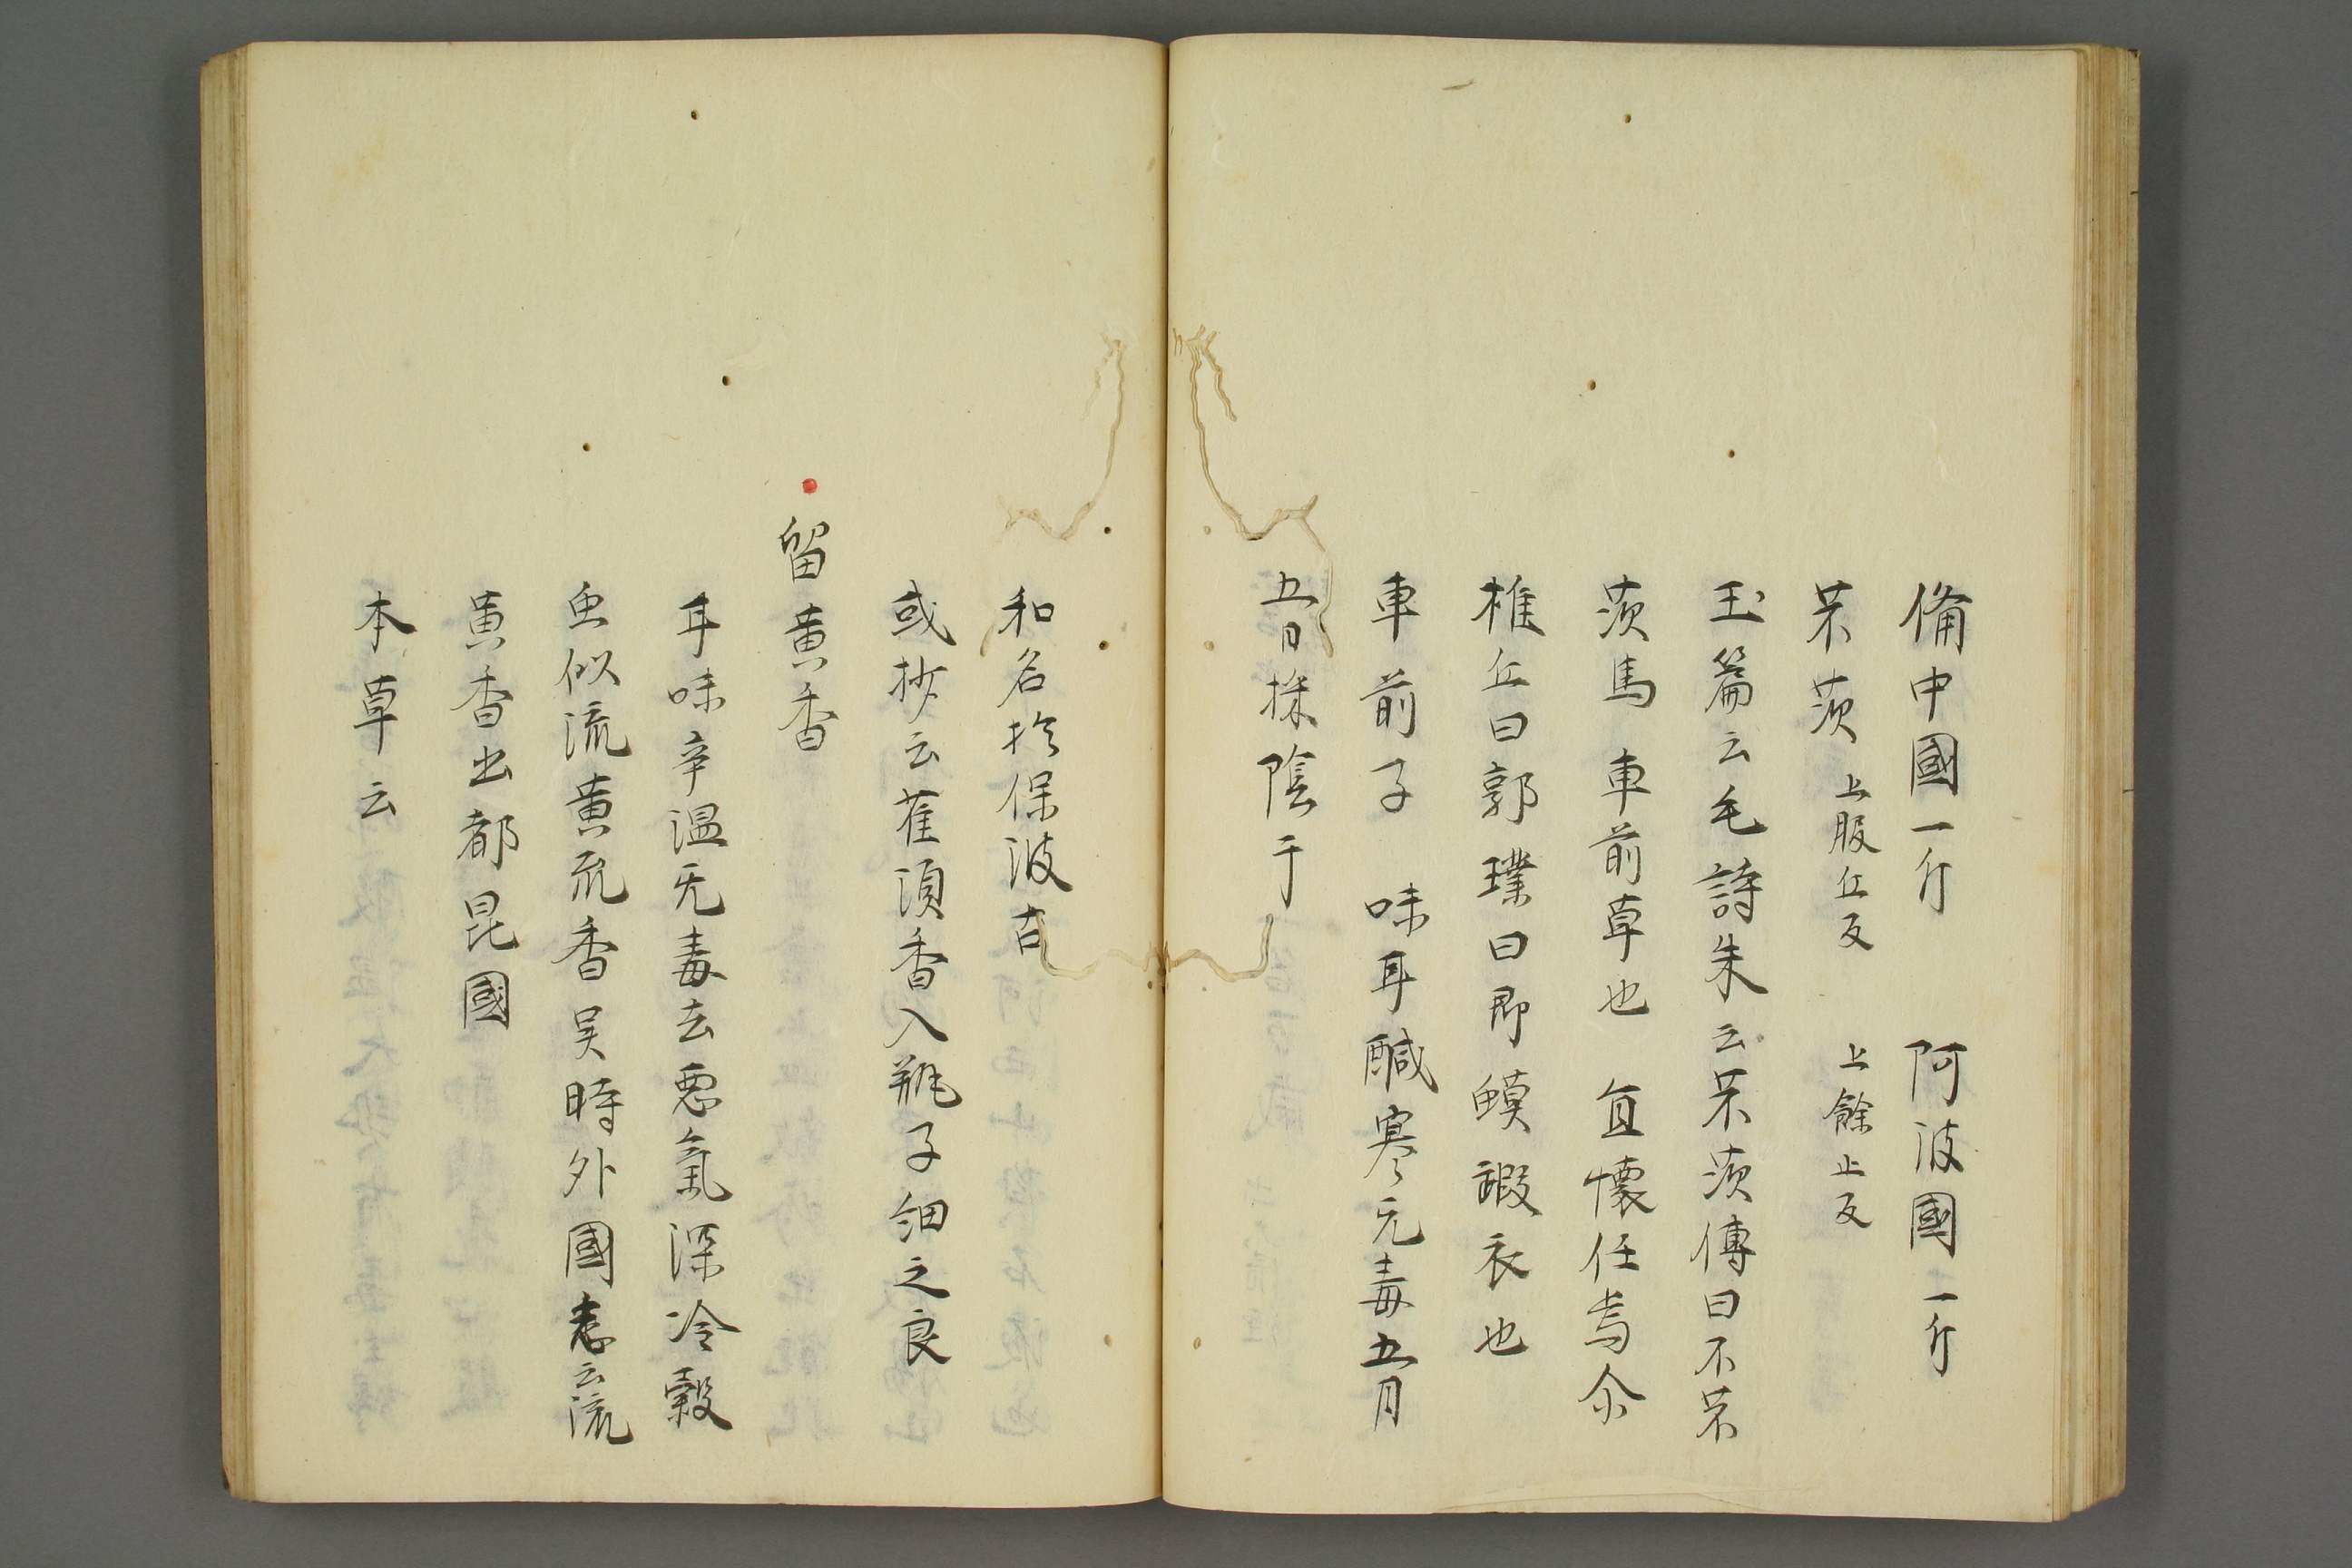 備中國一斤　阿波國二斤
芣茨　上服丘反　上餘止反
玉篇云毛詩朱云芣茨傳曰不芣
茨馬車前草也　宜懐任焉尒
椎丘曰郭璞曰即蟆蝦衣也
車前子　味耳醎寒无毒五月
五日採陰干
和名於保波古
或抄云萑湏香入瓶子細之良
留黄香
耳味辛温无毒去悪氣深冷穀
虫似流黄而香吴時外國志云流
黄香出都昆國
本草云